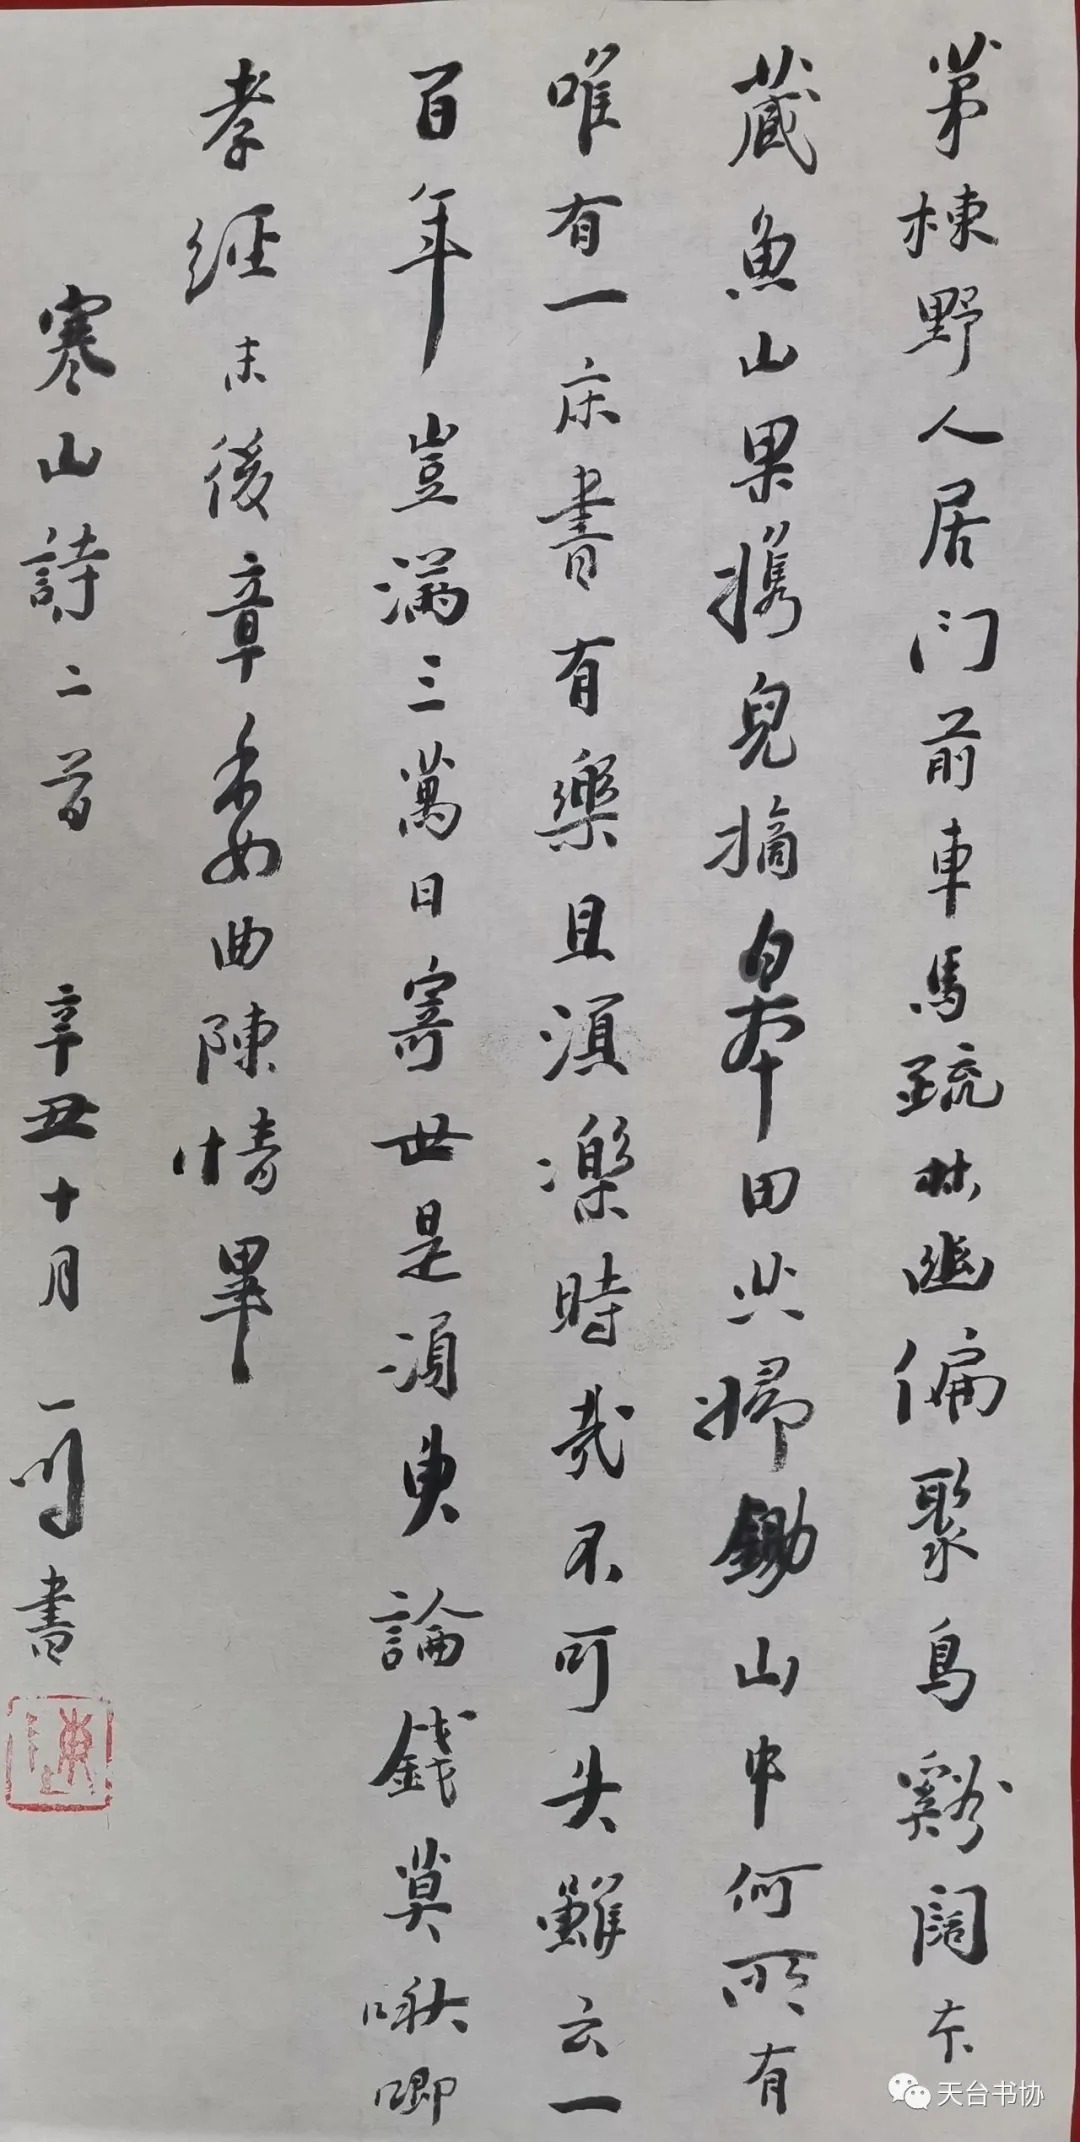 茅棟野人居门前車馬疏林幽偏聚鳥谿闊本
藏魚山果携兒摘皋田共婦鋤山中何所有
唯有一床書有樂且須樂時哉不可失雖云一
百年豈滿三萬日寄世是須臾論錢莫啾唧
孝經末後章委曲陳情畢
寒山詩二首 辛丑十月 一 書
天台书协